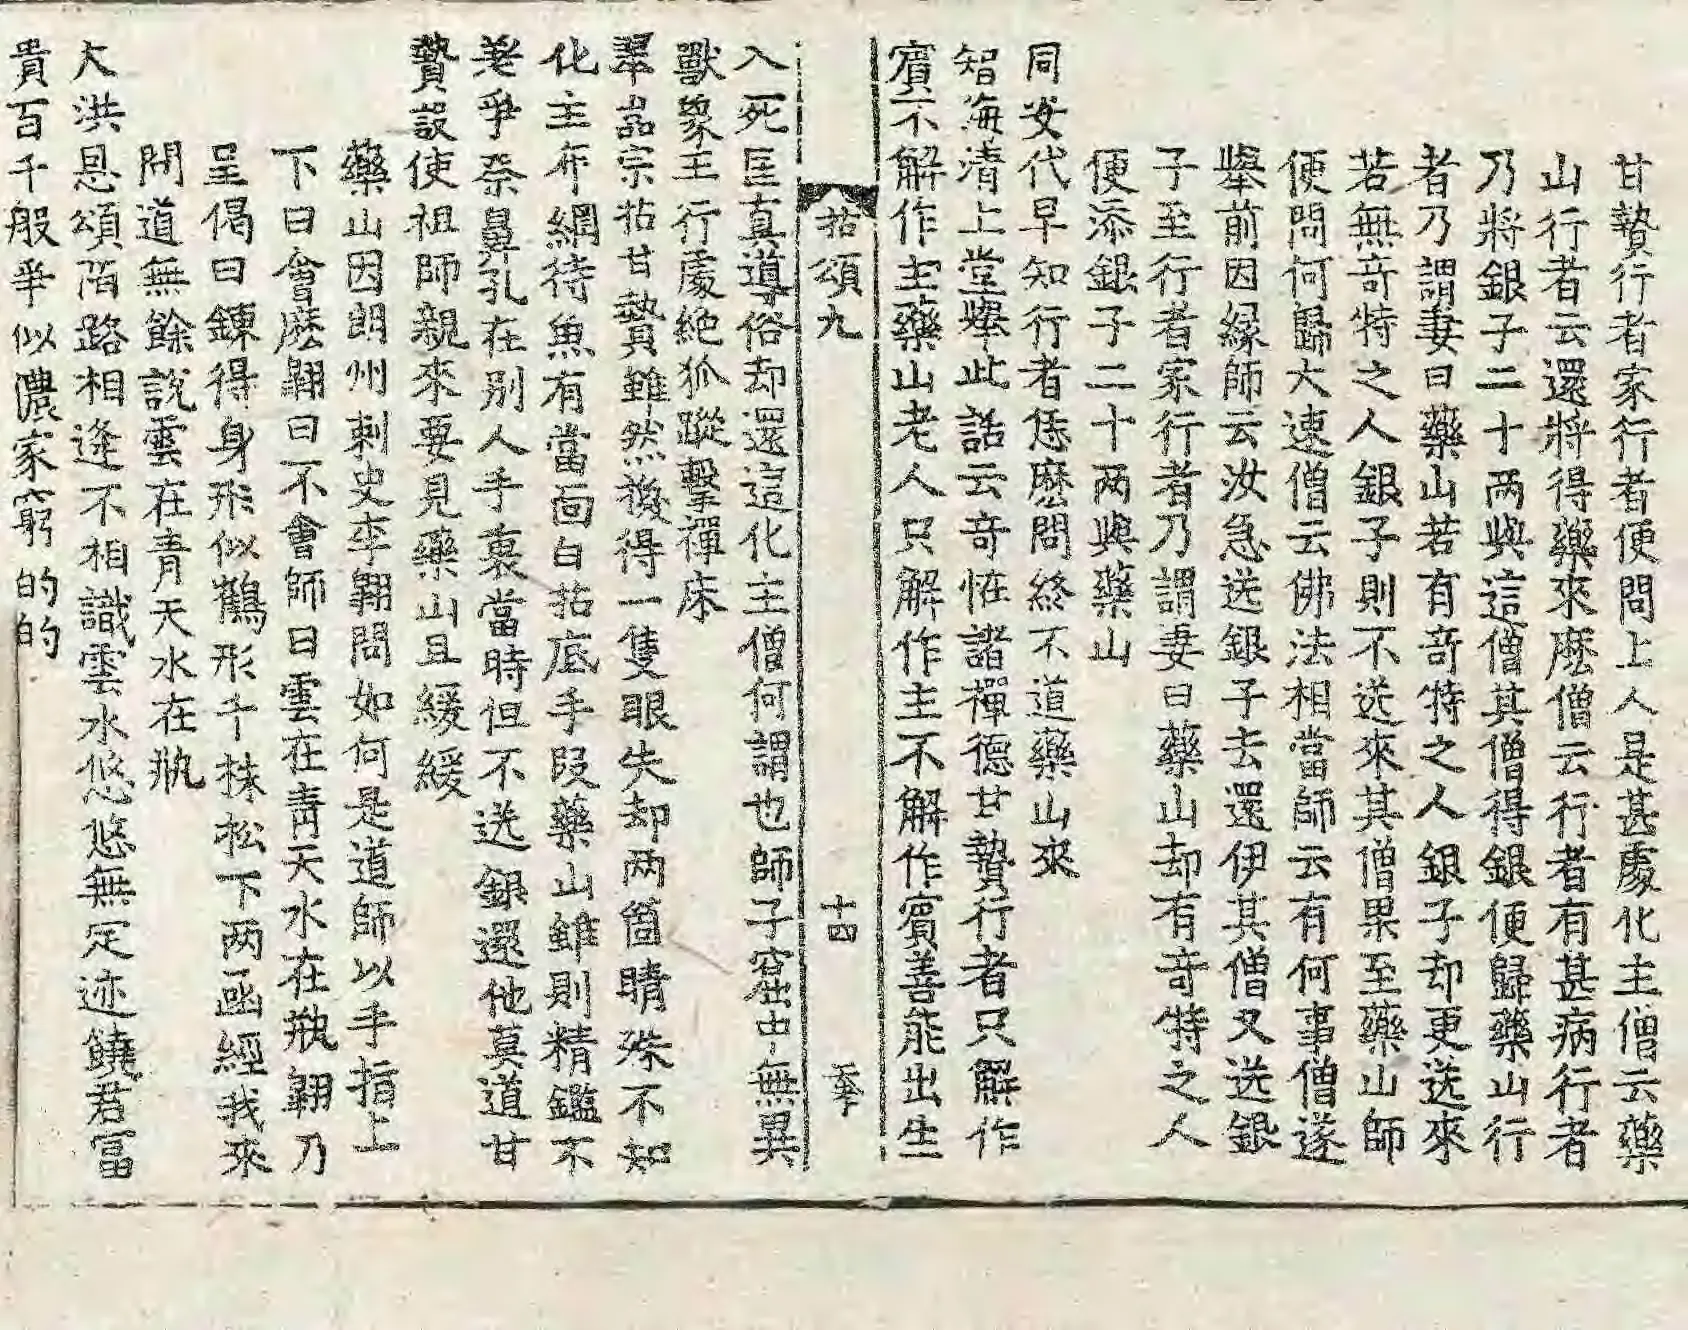 甘贄行者家行者便問上人是甚處化主僧云藥
山行者云還將得藥來麽僧云行者有甚病行者
乃將銀子二十两與這僧其僧得銀便歸藥山行
者乃謂妻曰藥山若有竒特之人銀子却更送來
若無竒特之人銀子則不送來其僧果至藥山師
便問何歸大速僧云佛法相當師云有何事僧遂
舉前因縁師云汝急送銀子去還伊其僧又送銀
子至行者家行者乃謂妻曰藥山却有竒特之人
便添銀子二十两與藥山
同安代早知行者恁麽問終不道藥山來
智海清上堂舉此話云竒恠諸禪德甘贄行者只解作
賔不解作主藥山老人只解作主不解作賔善能出生
拈頌九 十四
入死匡真導俗却還這化主僧何謂也師子窟中無異
獸象王行處絶狐蹤擊禪床
翠嵓宗拈甘贄雖然換得一隻眼失却两箇睛殊不知
化主布綱待魚有當面白拈底手段藥山雖則精鑑不
差爭奈鼻孔在别人手裏當時但不送銀還他莫道甘
贄設使祖師親來要見藥山且緩緩
藥山因朗州刺史李翶問如何是道師以手指上
下曰會麽翶曰不會師曰雲在青天水在瓶翶乃
呈偈曰鍊得身形似鶴形千株松下两函經我來
問道無餘說雲在青天水在瓶
大洪恩頌陌路相逢不相識雲水悠悠無定迹饒君冨
貴百千般爭似儂家窮的的